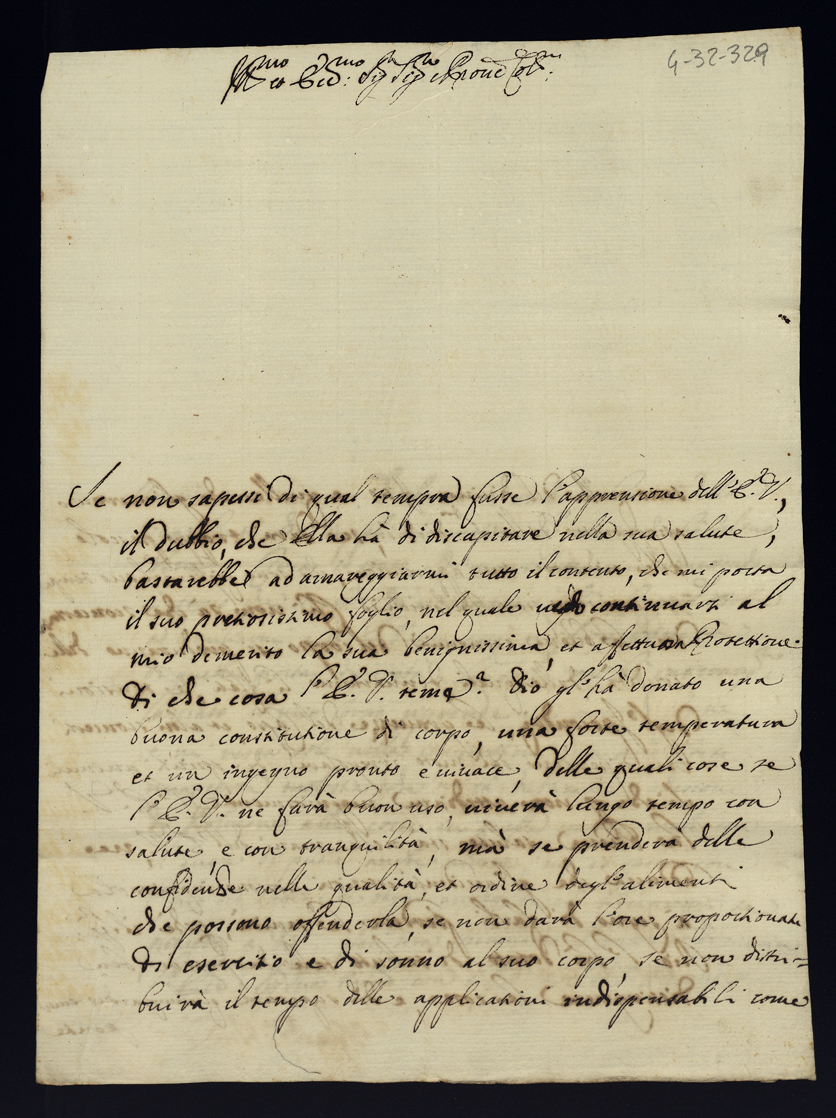 4-32-329
Ill.mo et Ecc.mo Sig.r Sig.r e Pron.e Col.mo
Se non sapessi di qual tempra fusse l'apprensione dell'E. V.,
il dubbio, che Ella hà di discapitare nella sua salute,
bastarebbe ad amareggiarmi tutto il contento, che mi porta
il suo pretiosissimo foglio, nel quale vedo continuarsi al
mio demerito la sua benignissima, et affettuosa Protettione.
Di che cosa l'E. V. teme? Dio gl'hà donato una
buona constitutione di corpo, una forte temperatura
et un ingegno pronto e vivace, delle quali cose se
l'E. V. ne farà buon uso, viverà lungo tempo con
salute, e con tranquilità, mà se prenderà delle
confidenze nelle qualità, et ordine degl'alimenti
che possono offenderla, se non darà l'ore proportionate
di esercitio e di sonno al suo corpo, se non distri=
buirà il tempo delle applicationi indispensabili come